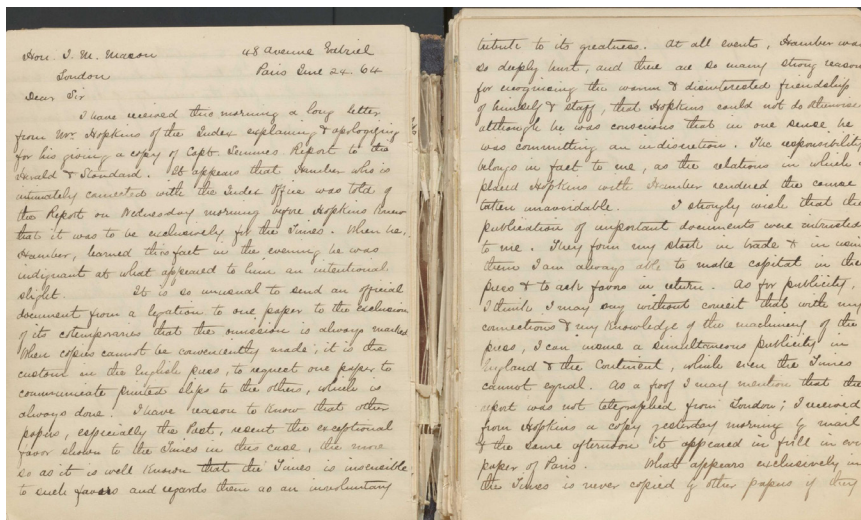 Hon. J. M. Mason 48 Avenue Gabriel
London Paris June 24. 64
Dear Sir
I have received this morning a long letter
from Mr. Hopkins of the Index explaining & apologising
for his giving a copy of Capt. Semmes Report to the
Herald & Standard. It appears that Hamber who is
intimately connected with the Index office was told of
the Report on Wednesday morning before Hopkins knew
that it was to be exclusively for the Times. When he,
Hamber, learned this fact in the evening he was
indignant at what appeared to him an intentional
slight. It is so unusual to send an official
document from a legation to one paper to the exclusion
of its cotemporaries that the omission is always marked
When copies cannot be conveniently made, it is the
custom in the English press, to request one paper to
communicate printed slips to the others, which is
always done. I have reason to know that other
papers, especially the Post, resent the exceptional
favor shown to the Times in this case, the more
so as it is well known that the Times is insensible
to such favors and regards them as an involuntary
tribute to its greatness. At all events, Hamber was
so deeply hurt, and there are so many strong reason
for recognising the warm & disinterested friendship
of himself & staff, that Hopkins could not do otherwise
although he was conscious that in one sense he
was committing an indiscretion. The responsibility
belongs in fact to me, as the relations in which I
placed Hopkins with Hamber rendered the course
taken unavoidable. I strongly wish that the
publication of important documents were intrusted
to me. They form my stock in trade & in using
them I am always able to make capital in the
press & to ask favors in return. As for publicity,
I think I may say without conceit that with my
connections & my knowledge of the machinery of the
press, I can insure a simultaneous publicity in
England & the Continent, which even the Times
cannot equal. As a proof I may mention that the
report was not telegraphed from London; I received
from Hopkins a copy yesterday morning by mail
& the same afternoon it appeared in full in our
paper of Paris. What appears exclusively in
the Times is never copied by other papers if they